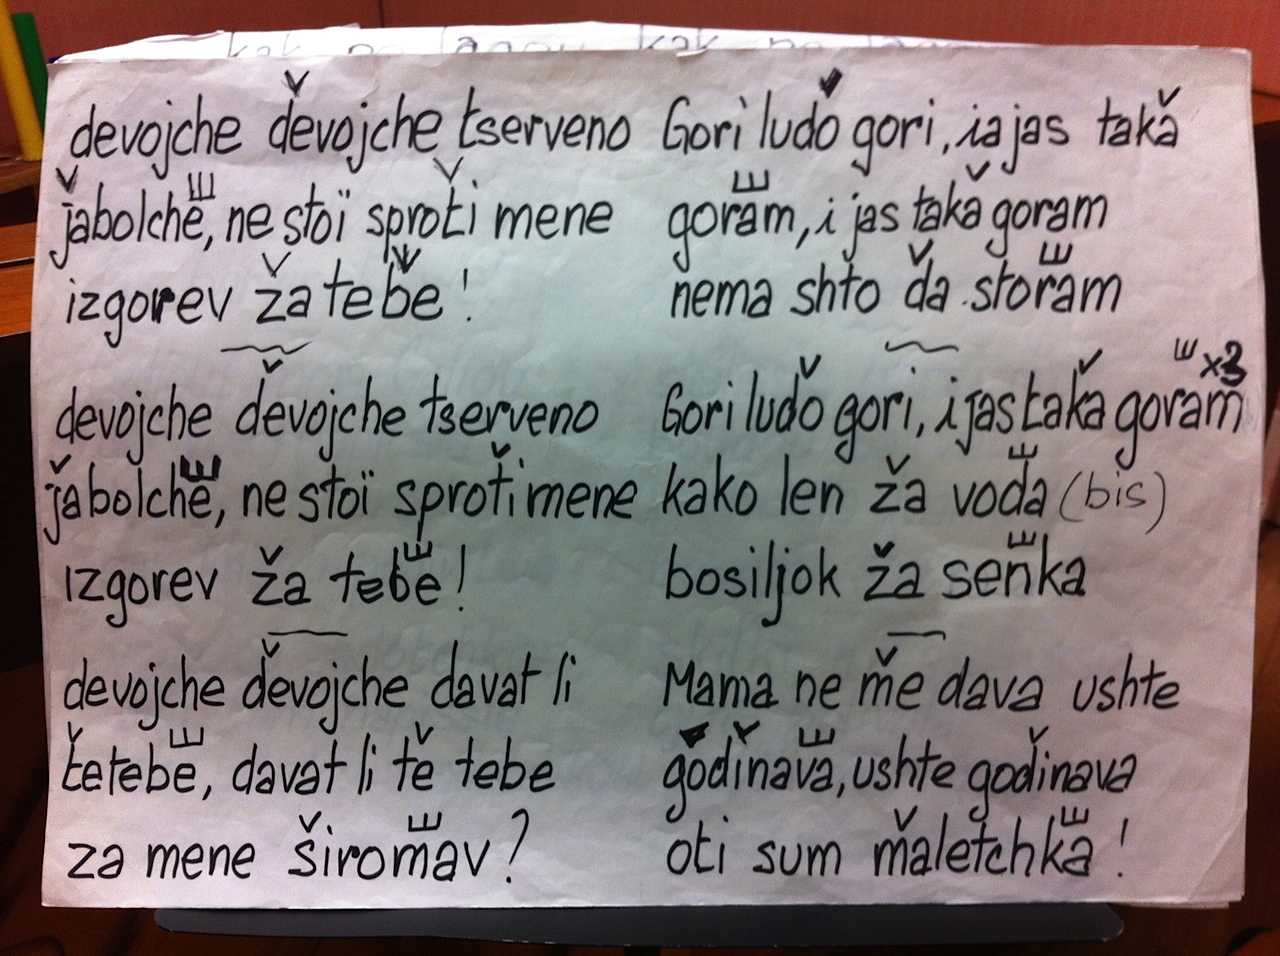 devojche devojche tserveno
jabolche, ne stoï sproti mene
izgorev za tebe !
devojche devojche tserveno
jabolche, ne stoï sproti mene
izgorev za tebe !
devojche devojche davat li
te tebe, davat li te tebe
za mene siromav ?
Gori ludo gori, ia jas taka
goram, i jas taka goram
nema shto da storam
x3
Gori ludo gori, i jas taka goram
kako len za voda (bis)
bosiljok za senka
Mama ne me dava ushte
godinava, ushte godinava
oti sum maletchka !